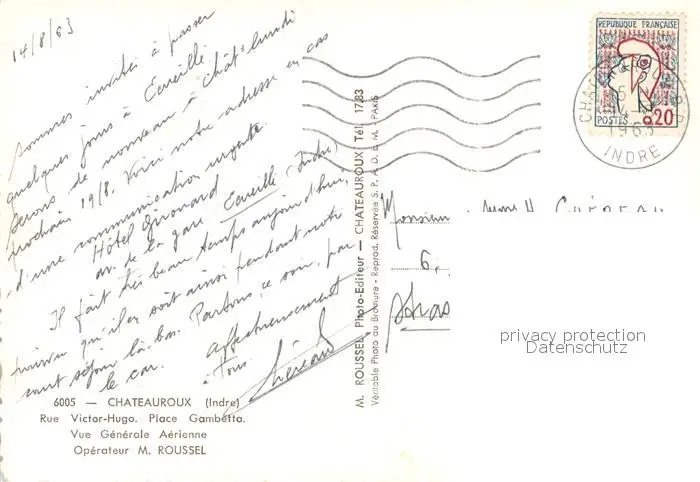 14/8/63
Sommes invités à passer
quelques jours à Ecueillé.
Serons de nouveau à Chât. lundi
prochain 19/8. Voici notre adresse en cas
d'une communication urgente
Hôtel
av. de la gare Ecueillé (Indre)
Il fait très beau temps aujourd'hui,
qu'il en soit ainsi pendant notre
court séjour là-bas. Partons, ce soir, par
le car. Affectueusement
à tous
6005 — CHATEAUROUX (Indre)
Rue Victor-Hugo. Place Gambetta.
Vue Générale Aérienne
Opérateur M. ROUSSEL
M. ROUSSEL Photo-Editeur — CHATEAUROUX Tél. 17.83
Véritable Photo au Bromure - Reprod. Réservée S. P. A. D. E. M. PARIS
REPUBLIQUE FRANÇAISE
POSTES 0,20
1963
INDRE
Monsieur
6,
Stras
privacy protection
Datenschutz